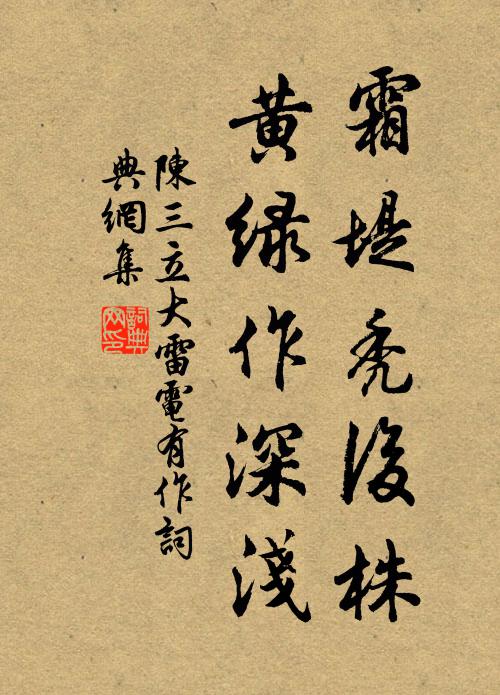 霜堤秃後株
黄绿作深淺
陳三立大雷電有作詞
典網集
詞典网印